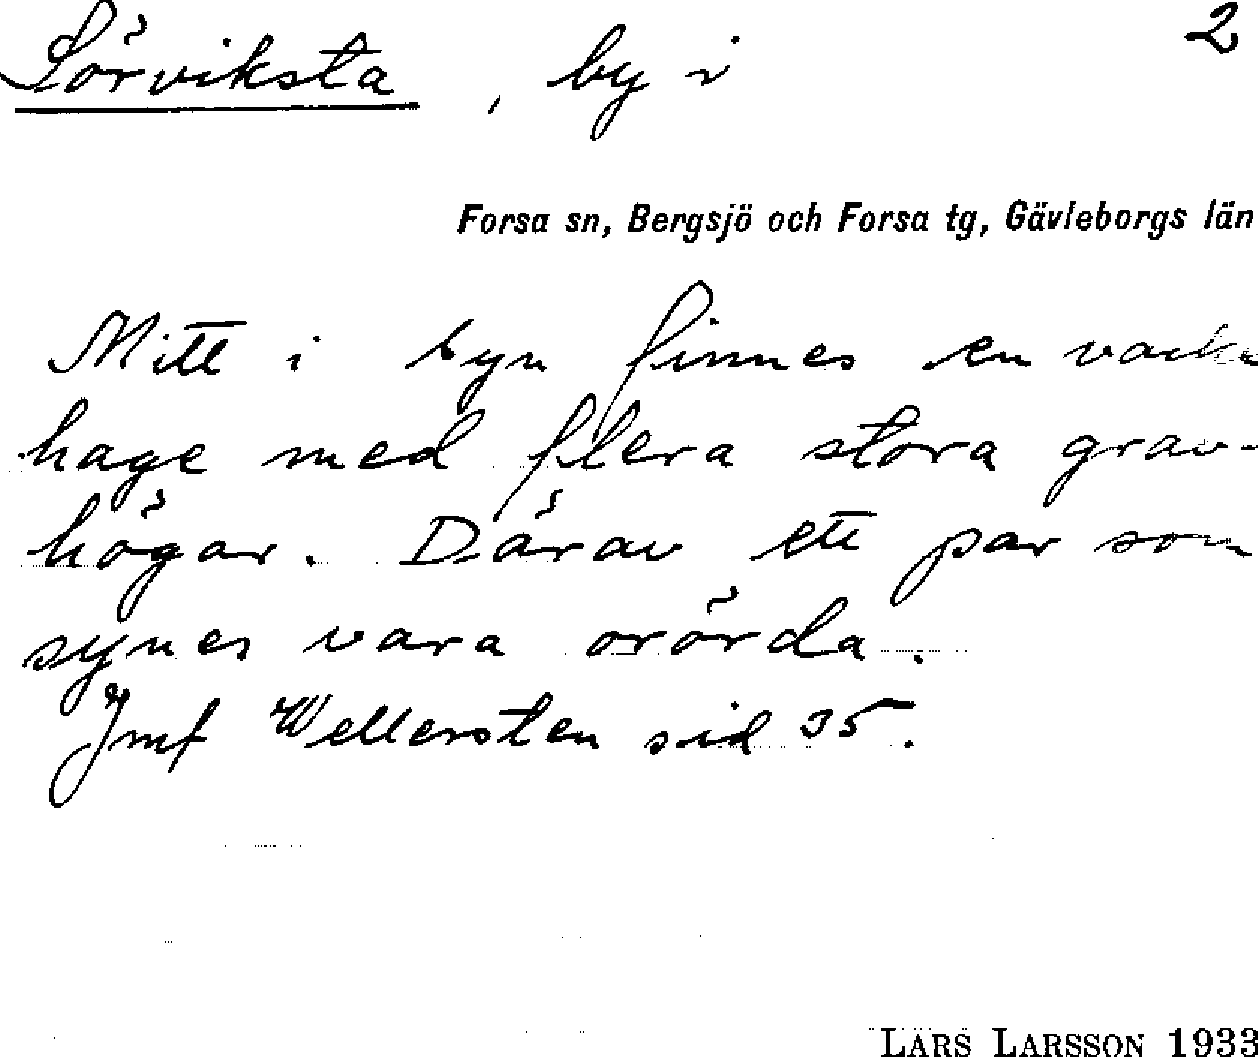 Sörviksta, by i 2
Forsa sn, Bergsjö och Forsa tg, Gävleborgs län
Mitt i byn finnes en
hage med flera stora grav-
högar. Därav ett par som
synes vara orörda.
Jmf Wellersten sid 35.
LARS LARSSON 1933